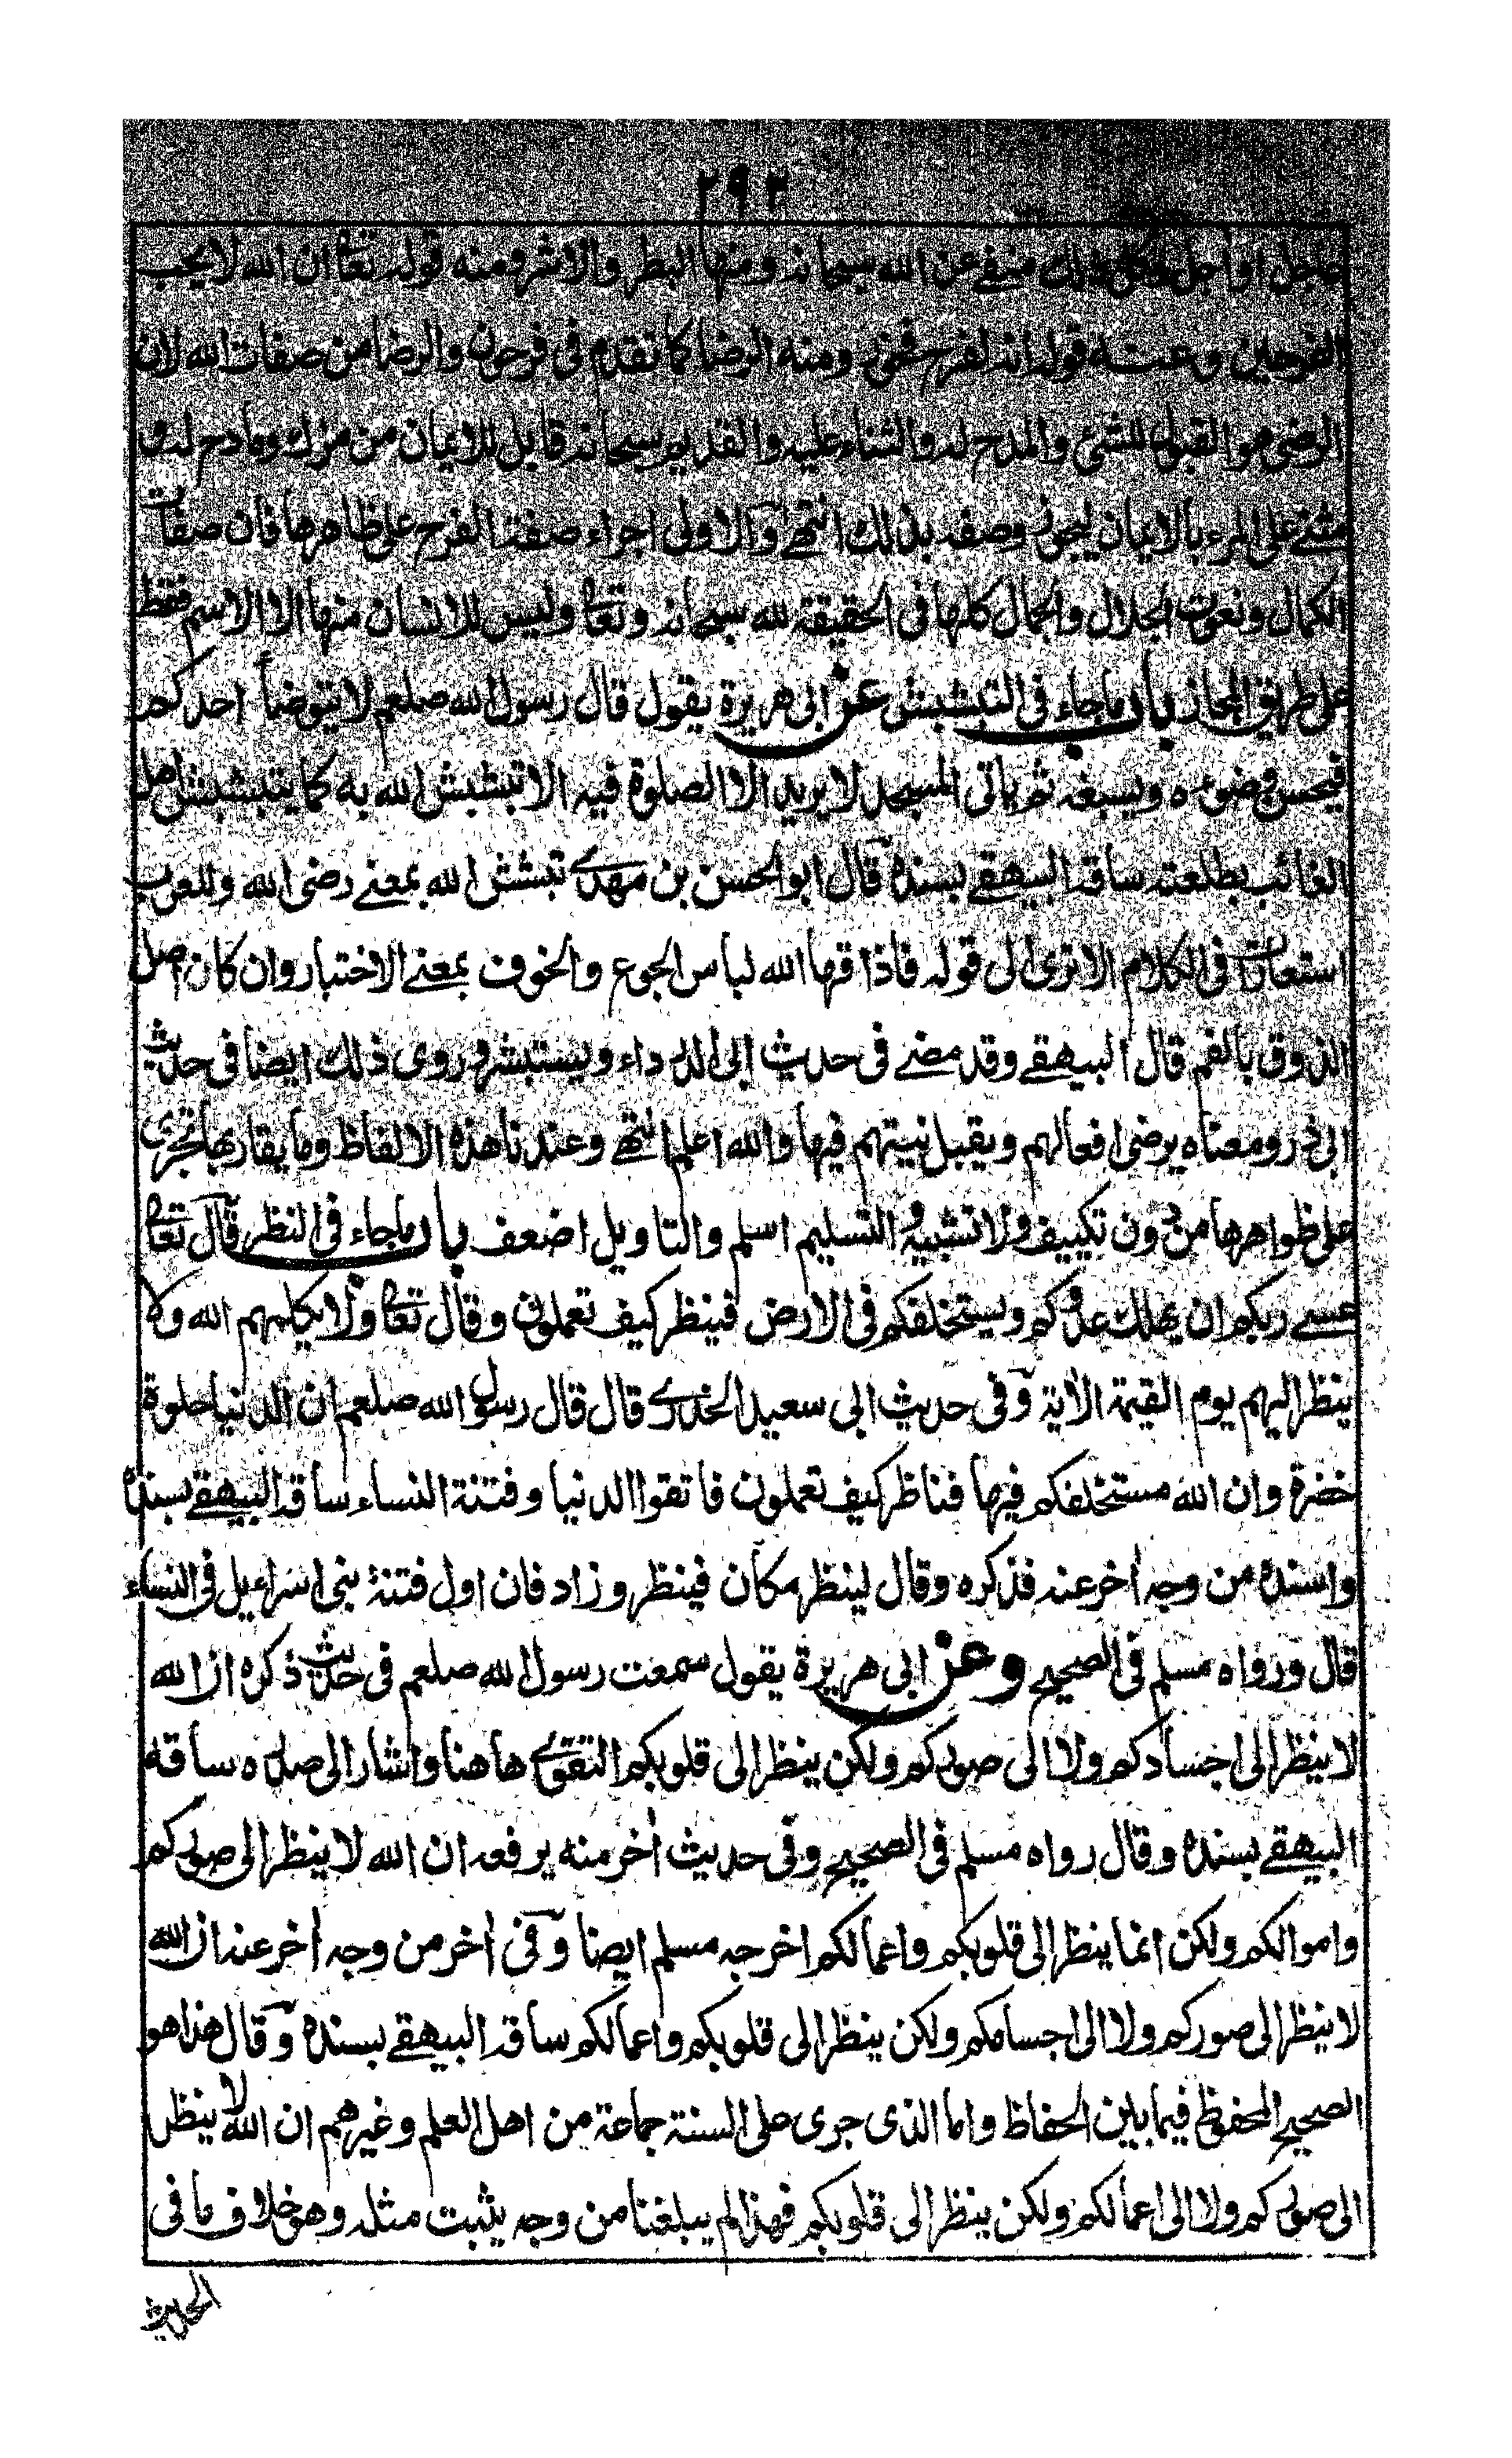 ٢٩٢
عاجل او آجل وكل ذلك منفے عن الله سبحانه ومنها البطر والاشر ومنه قوله تعا ان الله لا يحب
الفرحين وعنه قوله انه لفرح فخور ومنه الرضا كما تقدم فى فرحون والرضا من صفات الله لان
الرضى هو القبول للشئ والمدح له والثناء عليه والقديم سبحانه قابل للايمان من مزك ومادح له و
مثنے على المرء بالايمان ليجوز وصفه بذلك انتهے والاولى اجراء صفة الفرح على ظاهرها فان صفات
الكمال ونعوت الجلال والجمال كلها فى الحقيقة لله سبحانه وتعا وليس للانسان منها الا الاسم فقط
على طريق المجاز باب ماجاء فى التبشبش عن ابى هريرة يقول قال رسول الله صلعم لا يتوضأ احدكم
فيحسن وضوءه ويسبغه ثم ياتى المسجد لا يريد الا الصلوة فيه الا تبشبش الله به كما يتبشبش اهل
الغائب بطلعته ساقه البيهقے بسنده قال ابو الحسن بن مهدے تبشش الله بمعنے رضى الله وللعرب
استعارات فى الكلام الا ترى الى قوله فاذاقها الله لباس الجوع والخوف بمعنے الاختبار وان كان اصل
الذوق بالفم قال البيهقے وقد مضے فى حديث ابى الدرداء ويستبشر وروى ذلك ايضا فى حديث
ابى ذر ومعناه يرضى افعالهم ويقبل نيتهم فيها والله اعلم انتهے وعندنا هذه الالفاظ وما يقاربها تجرى
على ظواهرها من دون تكييف ولا تشبيه والتسليم اسلم والتاويل اضعف باب ماجاء فى النظر قال تعا
عسے ربكم ان يهلك عدوكم ويستخلفكم فى الارض فينظر كيف تعملون وقال تعا ولا يكلمهم الله ولا
ينظر اليهم يوم القيمة الآية وفى حديث ابى سعيد الخدرے قال قال رسول الله صلعم ان الدنيا حلوة
خضرة وان الله مستخلفكم فيها فناظر كيف تعملون فاتقوا الدنيا وفتنة النساء ساقه البيهقے بسنده
واسنده من وجه آخر عنه فذكره وقال لينظر مكان فينظر وزاد فان اول فتنة بنى اسرائيل فى النساء
قال ورواه مسلم فى الصحيح وعن ابى هريرة يقول سمعت رسول الله صلعم فى حديث ذكره ان الله
لا ينظر الى اجسادكم ولا الى صوركم ولكن ينظر الى قلوبكم التقوے هاهنا واشار الى صدره ساقه
البيهقے بسنده وقال رواه مسلم فى الصحيح وفى حديث آخر منه يرفعه ان الله لا ينظر الى صوركم
واموالكم ولكن انما ينظر الى قلوبكم واعمالكم اخرجه مسلم ايضا وفى آخر من وجه آخر عنه ان الله
لا ينظر الى صوركم ولا الى اجسامكم ولكن ينظر الى قلوبكم واعمالكم ساقه البيهقے بسنده وقال هذا هو
الصحيح المحفوظ فيما بين الحفاظ واما الذى جرى على السنة جماعة من اهل العلم وغيرهم ان الله لا ينظر
الى صوركم ولا الى اعمالكم ولكن ينظر الى قلوبكم فهذا لم يبلغنا من وجه يثبت مثله وهو خلاف ما فى
الحديث